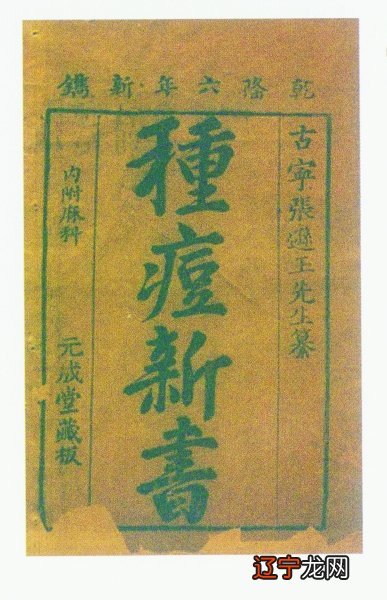 乾隆六年新鐫
古寧張遜玉先生纂
種痘新書
内附麻科
元成堂藏板
辽宁龙网